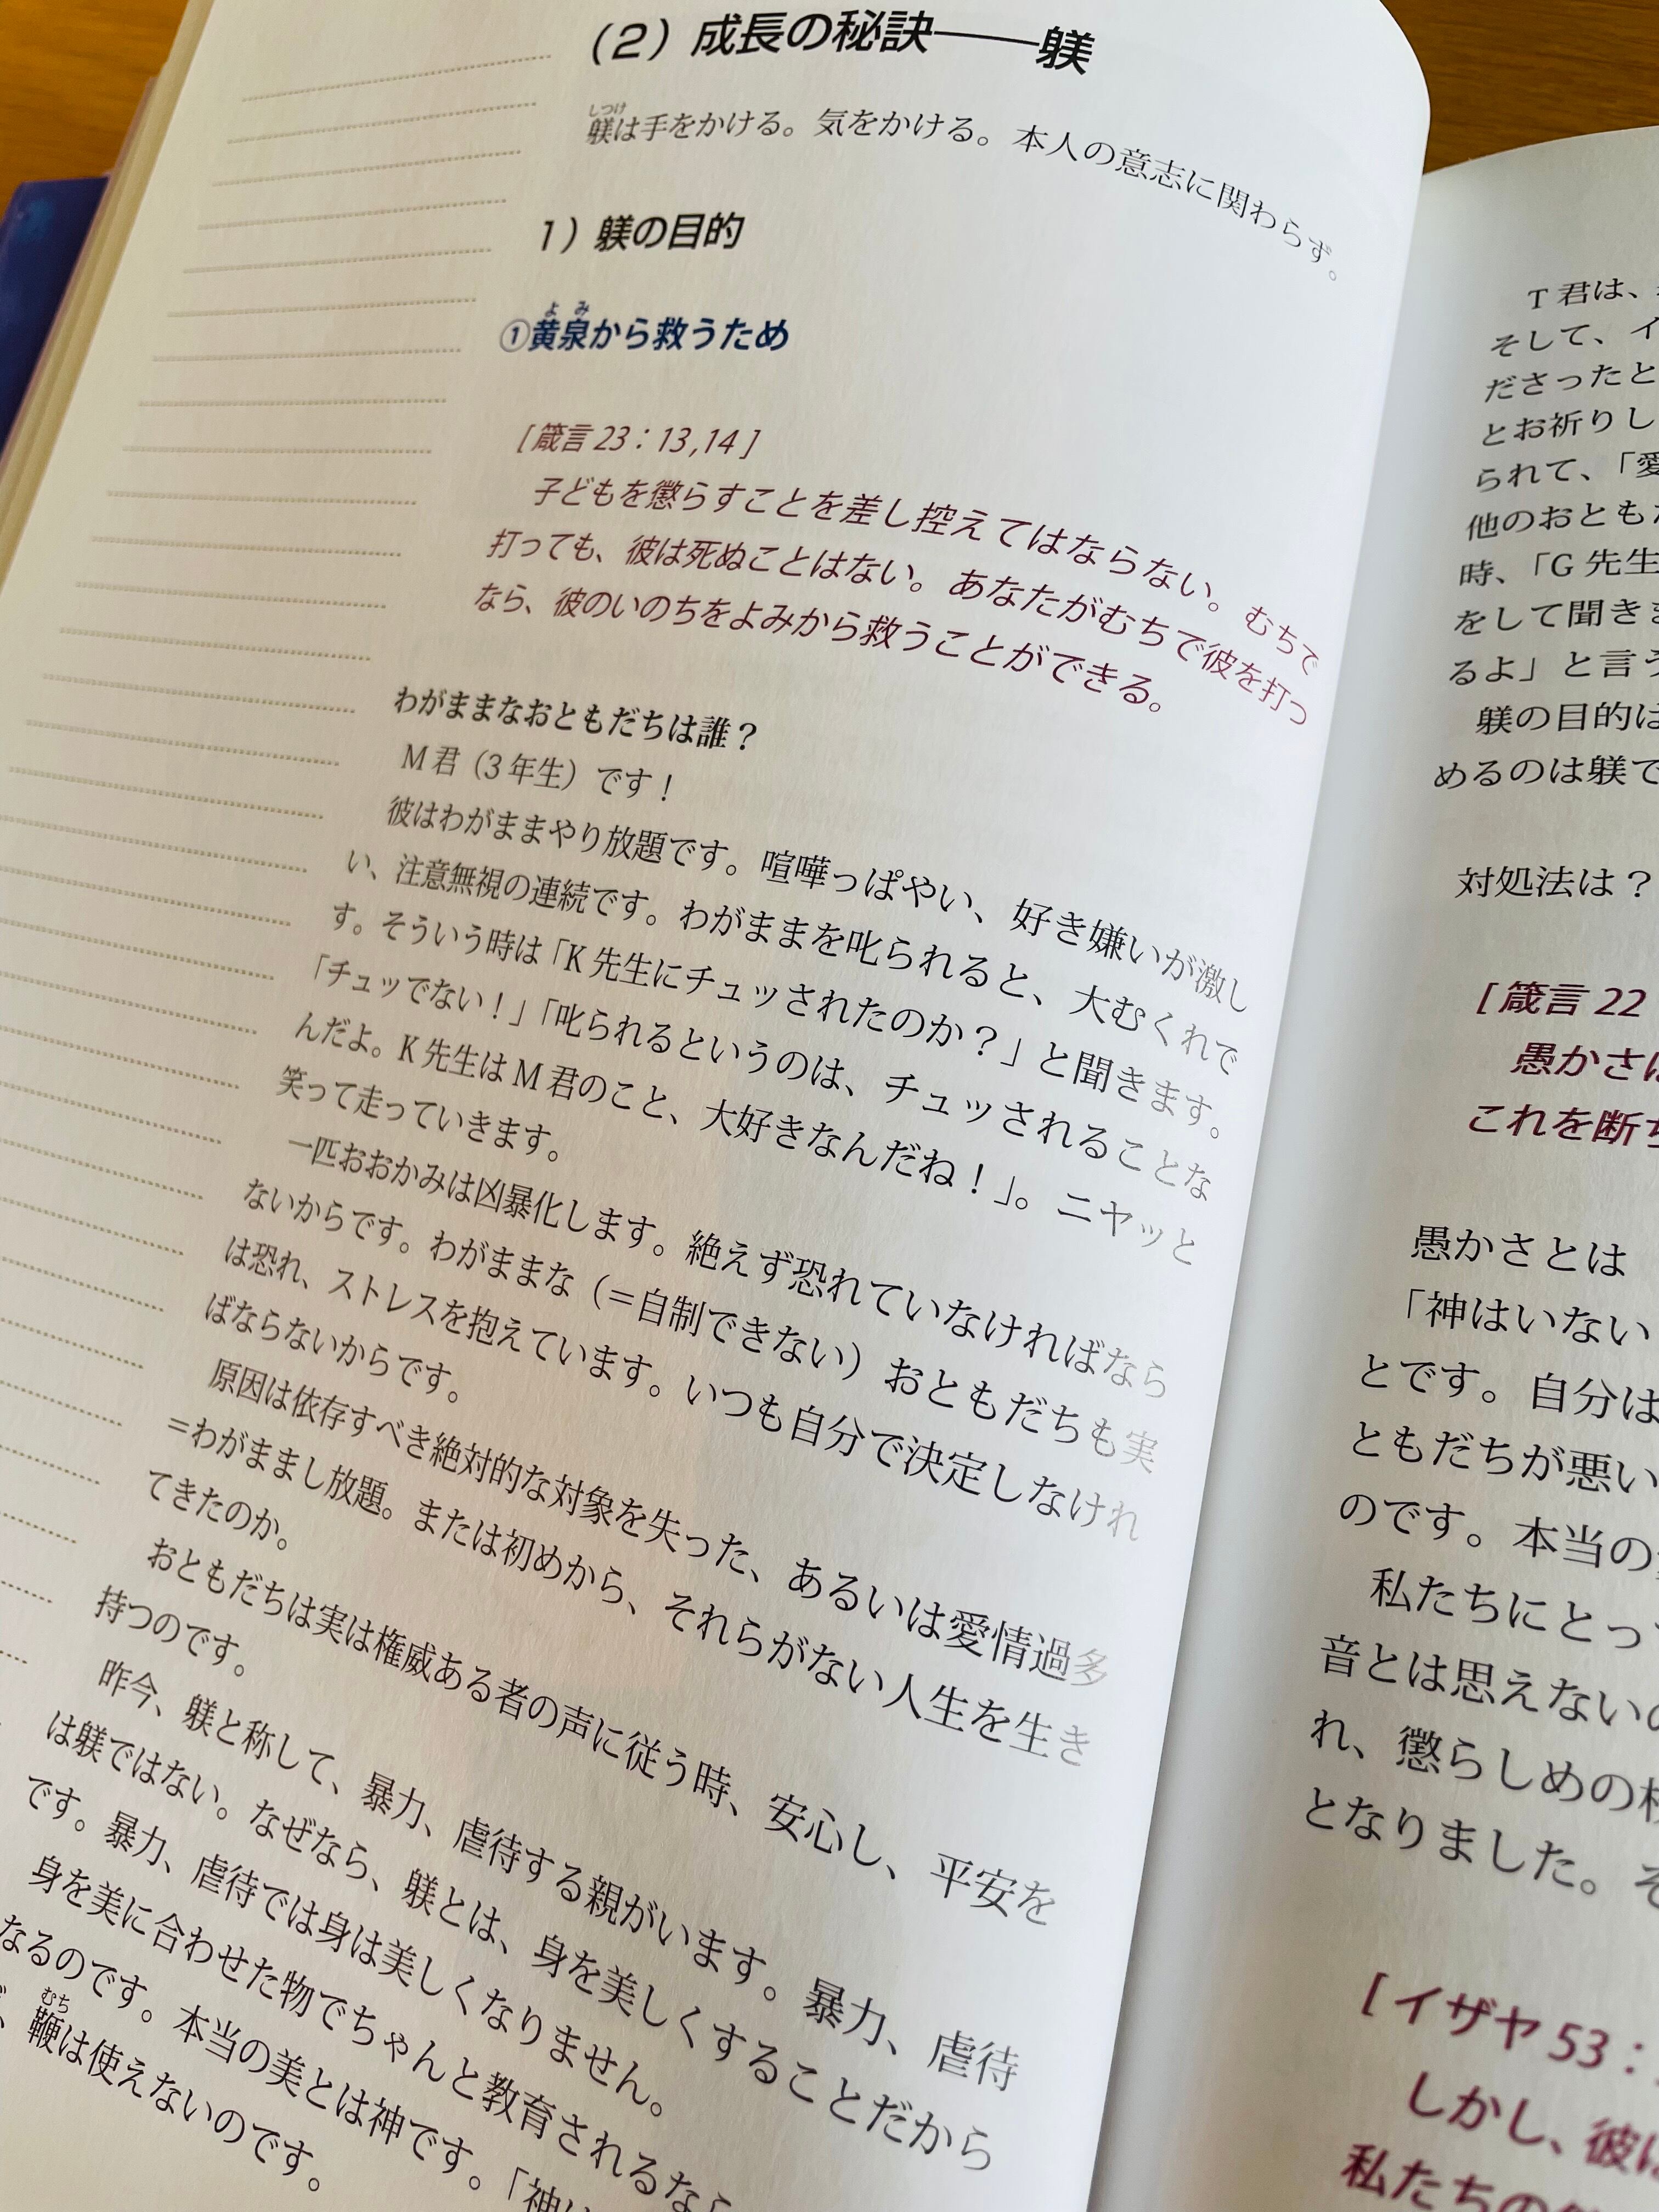 (2) 成長の秘訣――躾
しつけ
躾は手をかける。気をかける。本人の意志に関わらず。
1) 躾の目的
よみ
①黄泉から救うため
[箴言 23：13,14]
子どもを懲らすことを差し控えてはならない。むちで
打っても、彼は死ぬことはない。あなたがむちで彼を打つ
なら、彼のいのちをよみから救うことができる。
わがままなおともだちは誰？
M 君（3 年生）です！
彼はわがままやり放題です。喧嘩っぱやい、好き嫌いが激し
い、注意無視の連続です。わがままを叱られると、大むくれで
す。そういう時は「K 先生にチュッされたのか？」と聞きます。
「チュッでない！」「叱られるというのは、チュッされることな
んだよ。K 先生は M 君のこと、大好きなんだね！」。ニヤッと
笑って走っていきます。
一匹おおかみは凶暴化します。絶えず恐れていなければなら
ないからです。わがままな（=自制できない）おともだちも実
は恐れ、ストレスを抱えています。いつも自分で決定しなけれ
ばならないからです。
原因は依存すべき絶対的な対象を失った、あるいは愛情過多
=わがままし放題。または初めから、それらがない人生を生き
てきたのか。
おともだちは実は権威ある者の声に従う時、安心し、平安を
持つのです。
昨今、躾と称して、暴力、虐待する親がいます。暴力、虐待
は躾ではない。なぜなら、躾とは、身を美しくすることだから
です。暴力、虐待では身は美しくなりません。
身を美に合わせた物でちゃんと教育されるなら
なるのです。本当の美とは神です。「神は
むち
鞭は使えないのです。
T 君は、
そして、イ
ださったと
とお祈りし
られて、「愛
他のおともだ
時、「G 先生
をして聞きま
るよ」と言う
躾の目的は
めるのは躾で
対処法は？
[箴言 22
愚かさは
これを断ち
愚かさとは
「神はいない
とです。自分は
ともだちが悪い
のです。本当の
私たちにとっ
音とは思えないの
れ、懲らしめの
となりました。そ
[イザヤ 53：
しかし、彼は
私たちの